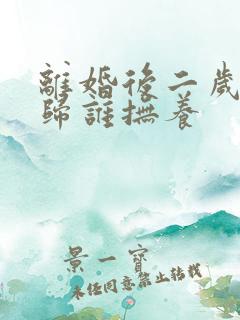 離婚後二歲
歸誰撫養
景一寶
未經同意禁止轉載